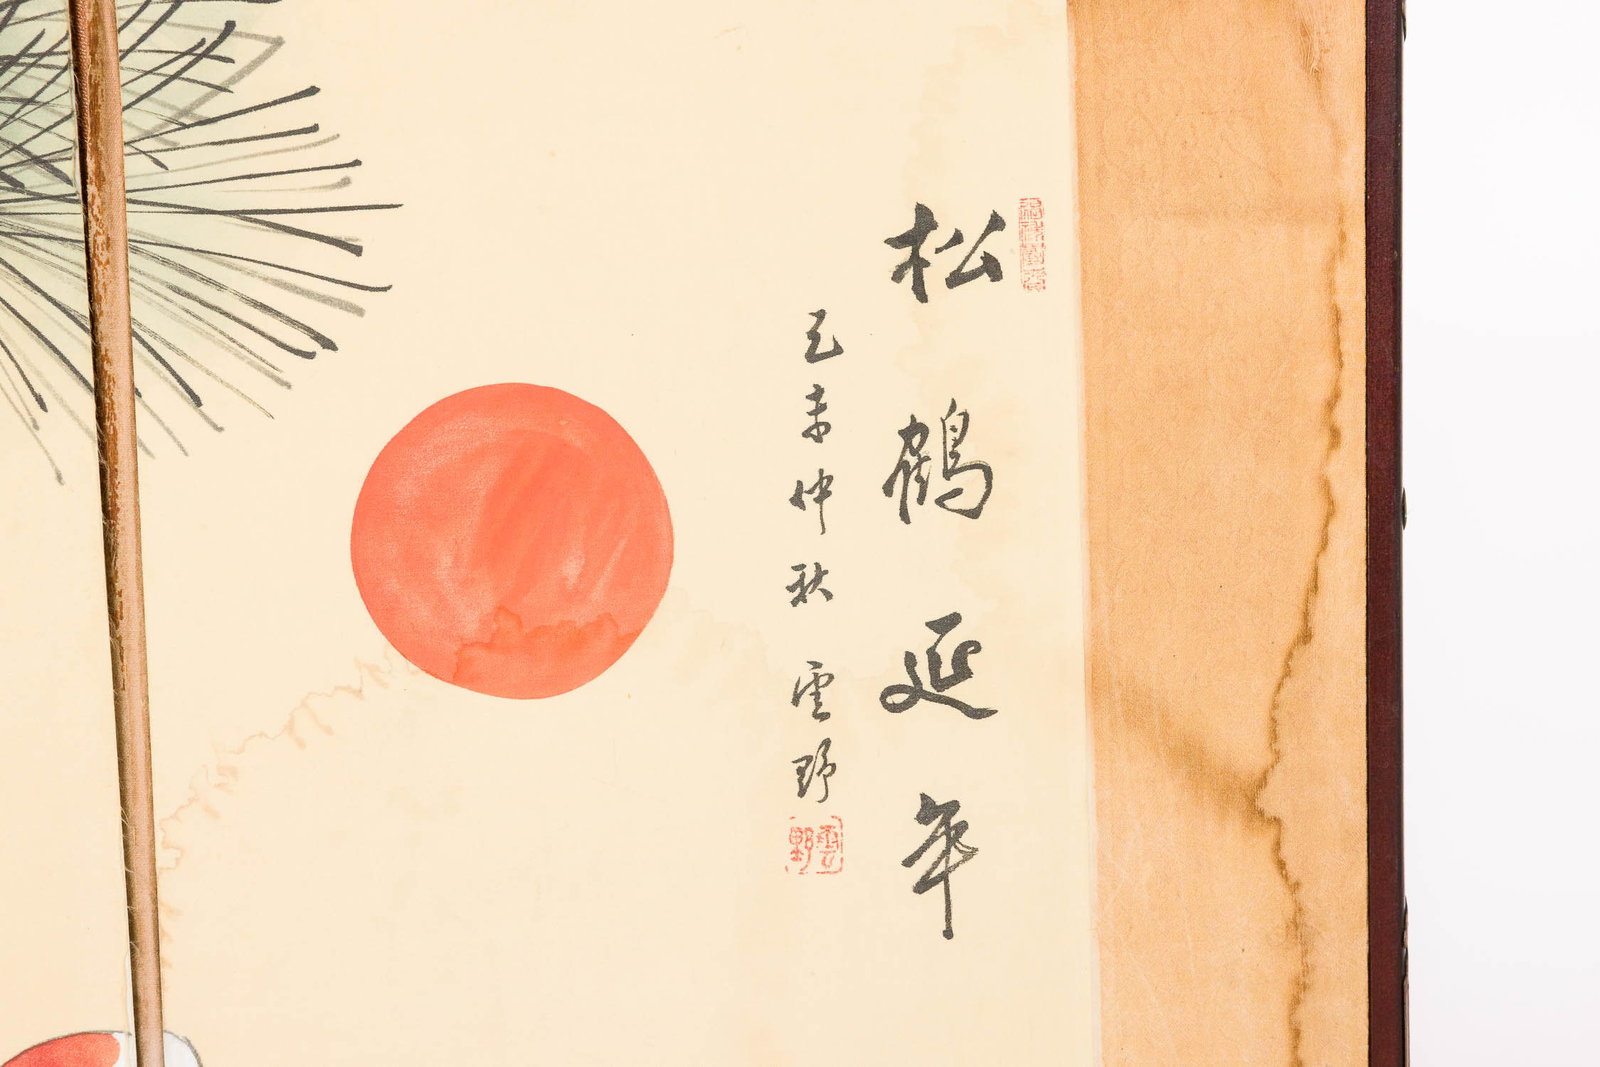 松鶴延年
己未仲秋 雲野
雲野